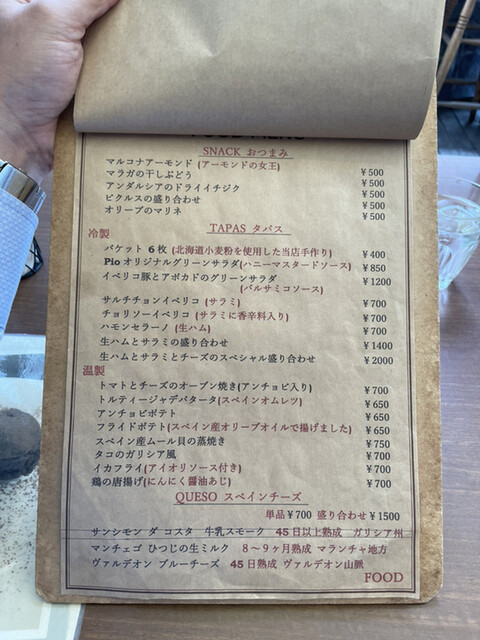 FOOD MENU
SNACK おつまみ
マルコナアーモンド (アーモンドの女王) ¥500
マラガの干しぶどう ¥500
アンダルシアのドライイチジク ¥500
ピクルスの盛り合わせ ¥500
オリーブのマリネ ¥500
TAPAS タパス
冷製
バケット 6枚 (北海道小麦粉を使用した当店手作り) ¥400
Pioオリジナルグリーンサラダ(ハニーマスタードソース) ¥850
イベリコ豚とアボカドのグリーンサラダ ¥1200
(バルサミコソース)
サルチチョンイベリコ (サラミ) ¥700
チョリソーイベリコ (サラミに香辛料入り) ¥700
ハモンセラーノ (生ハム) ¥700
生ハムとサラミの盛り合わせ ¥1400
生ハムとサラミとチーズのスペシャル盛り合わせ ¥2000
温製
トマトとチーズのオーブン焼き(アンチョビ入り) ¥700
トルティージャデパタータ(スペインオムレツ) ¥650
アンチョビポテト ¥650
フライドポテト(スペイン産オリーブオイルで揚げました) ¥650
スペイン産ムール貝の蒸焼き ¥750
タコのガリシア風 ¥700
イカフライ(アイオリソース付き) ¥700
鶏の唐揚げ(にんにく醤油あじ) ¥700
QUESO スペインチーズ
単品¥700 盛り合わせ ¥1500
サンシモン ダ コスタ 牛乳スモーク 45日以上熟成 ガリシア州
マンチェゴ ひつじの生ミルク 8〜9ヶ月熟成 マランチャ地方
ヴァルデオン ブルーチーズ 45日熟成 ヴァルデオン山脈
FOOD